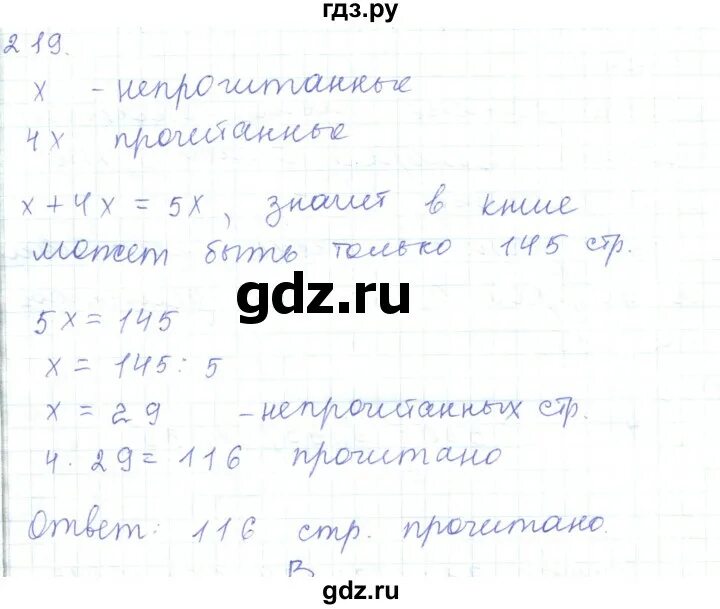 гдз.ру
219.
x - непрочитанные
4x прочитанные
x + 4x = 5x, значит в книге
может быть только 145 стр.
gdz.ru
5x = 145
x = 145 : 5
x = 29 - непрочитанных стр.
4 · 29 = 116 прочитано
Ответ: 116 стр. прочитано.
В
gdz.ru